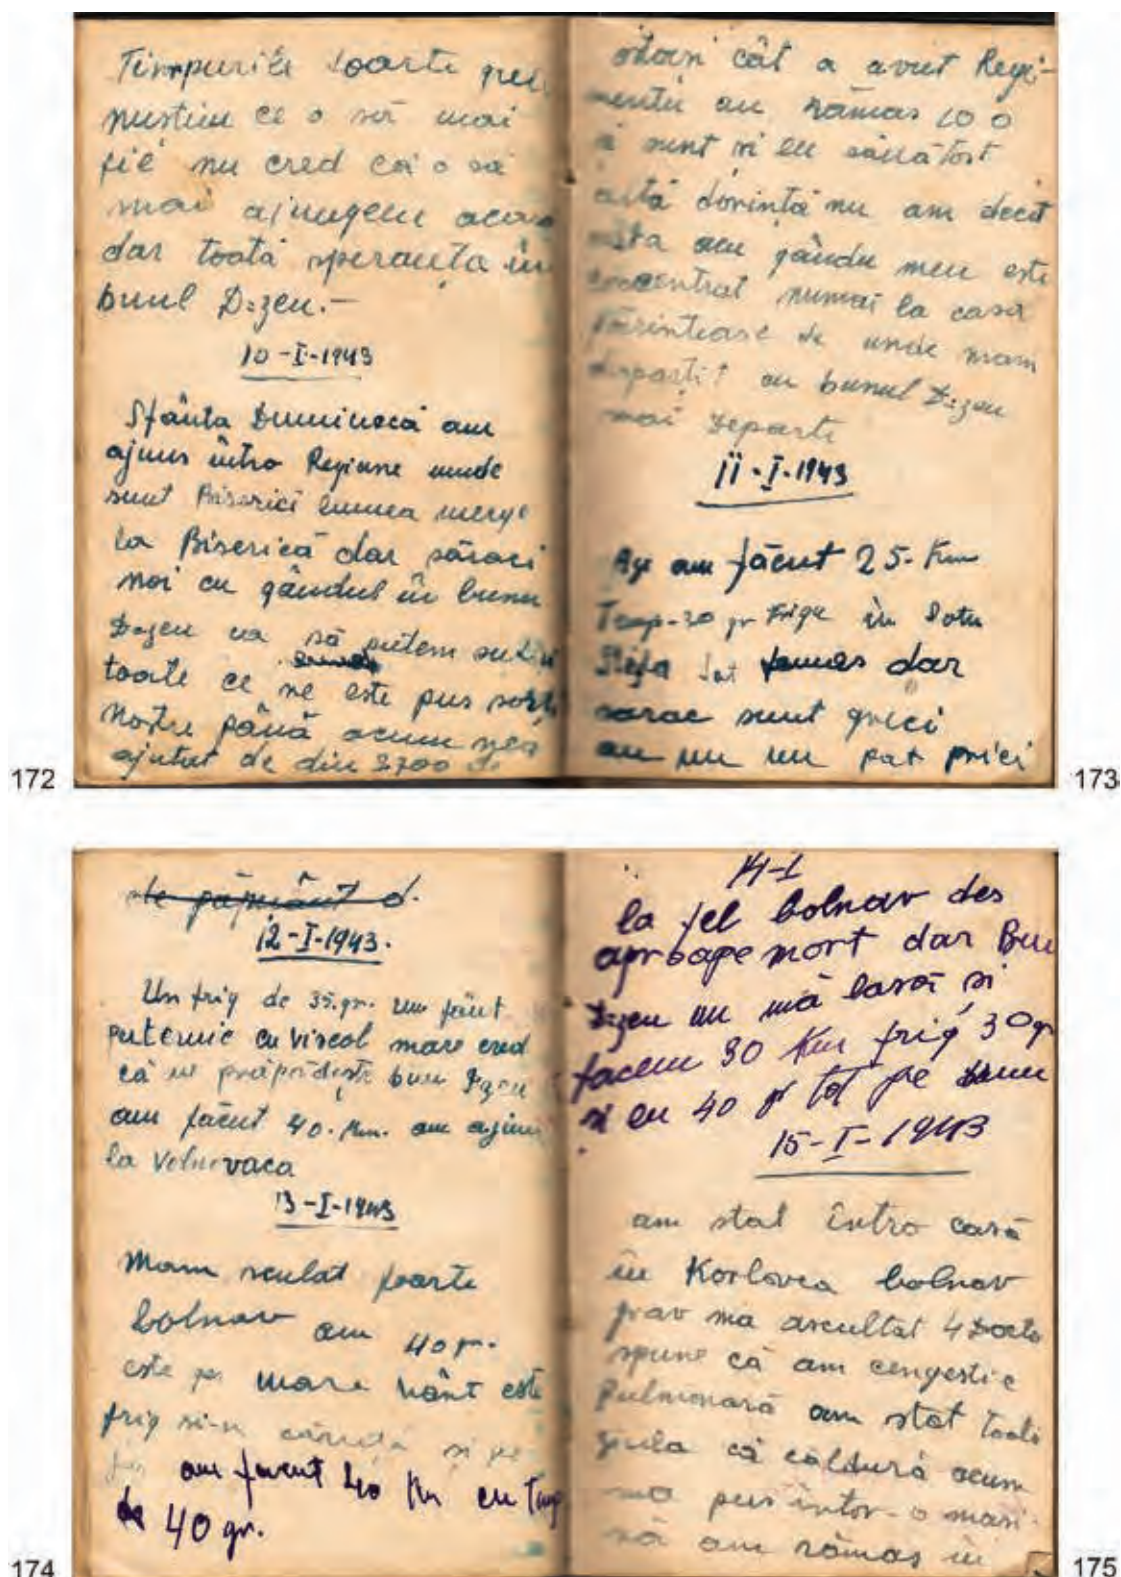 Timpurile foarte grele
nustim ce o să mai
fie nu cred că o să
mai ajungem acasa
dar toată speranța în
bunul D-zeu.-
10-I-1943
Sfânta Duminecă am
ajuns întro Regiune unde
sunt Biserici lumea merge
la Biserică dar săraci
noi cu gândul în bunu
D-zeu va să putem
toate ce ne este pus
nostre până acum nea
ajutat de din 3700 de
172
cât a avut Regi-
mentu au rămas 100
și sunt si eu sănătost
altă dorință nu am decât
asta am gându meu este
concentrat numai la casa
Părintească de unde mam
despartit cu bunul D-zeu
mai departe
11-I-1943
am făcut 25-Km
Temp-30 gr frigu în
sat dar
sarac sunt greci
au un pat prici
173
de pământ d.
12-I-1943.
Un frig de 35.gr. un fânt
puternic cu viscol mare cred
că ne prăpădește bun Dzeu
am făcut 40. Km. am ajuns
la Volnovaca
13-I-1943
Mam sculat foarte
bolnav am 40 gr.
este mare vânt este
frig si-n căruță si pe
jos am facut 40 Km cu Temp
de 40 gr.
174
14-I
la fel bolnav des
aproape mort dar Bun
Dzeu nu mă lasă si
facem 30 Km frig 30 gr
si eu 40 gr tot pe drum
15-I-1943
am stat întro casă
în Korlovca bolnav
grav ma ascultat 4 Docto
spune că am congestie
Pulmonară am stat toată
ziula că căldură acum
ma pus într-o mași-
nă am rămas in
175